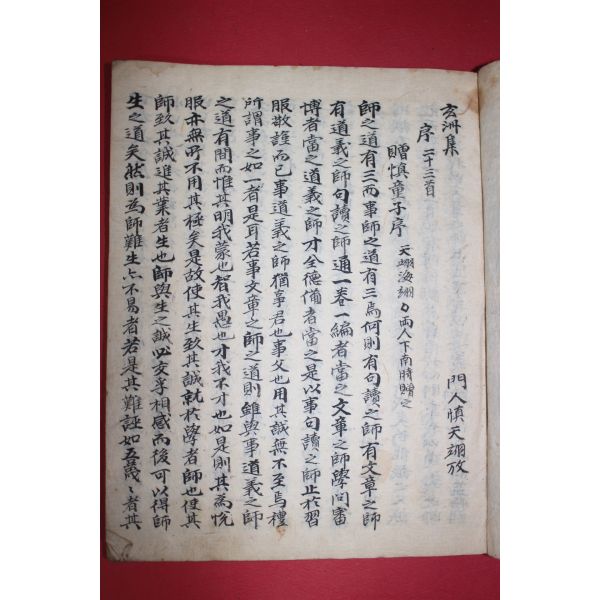 玄洲集
門人愼天翊放
序二十三首
贈愼童子序 天翊海翊〻兩人下南時贈之
師之道有三而事師之道有三焉何則有句讀之師有文章之師
有道義之師句讀之師通一卷一編者當之文章之師學問審
博者當之道義之師才全德備者當之是以事句讀之師止於習
服敬謹而已事道義之師猶事君也事父也用其誠無不至焉禮
所謂事之如一者是耳若事文章之師之道則雖與事道義之師
之道有間而惟其明我蒙也智我愚也才我不才也如是則其爲悅
服亦無所不用其極矣是故使其生致其誠就於學者師也使其
師致其誠進其業者生也師與生之誠必交孚相感而後可以得師
生之道矣然則爲師難生亦不易者若是其難誣如五歲〻者其